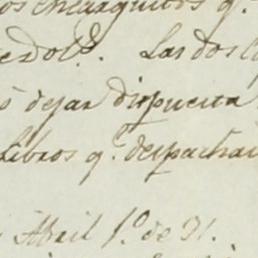 os encarguitos q.
Las dos
dejar dispuesta
Libros q.e despachar
Abril 1.o de 31.